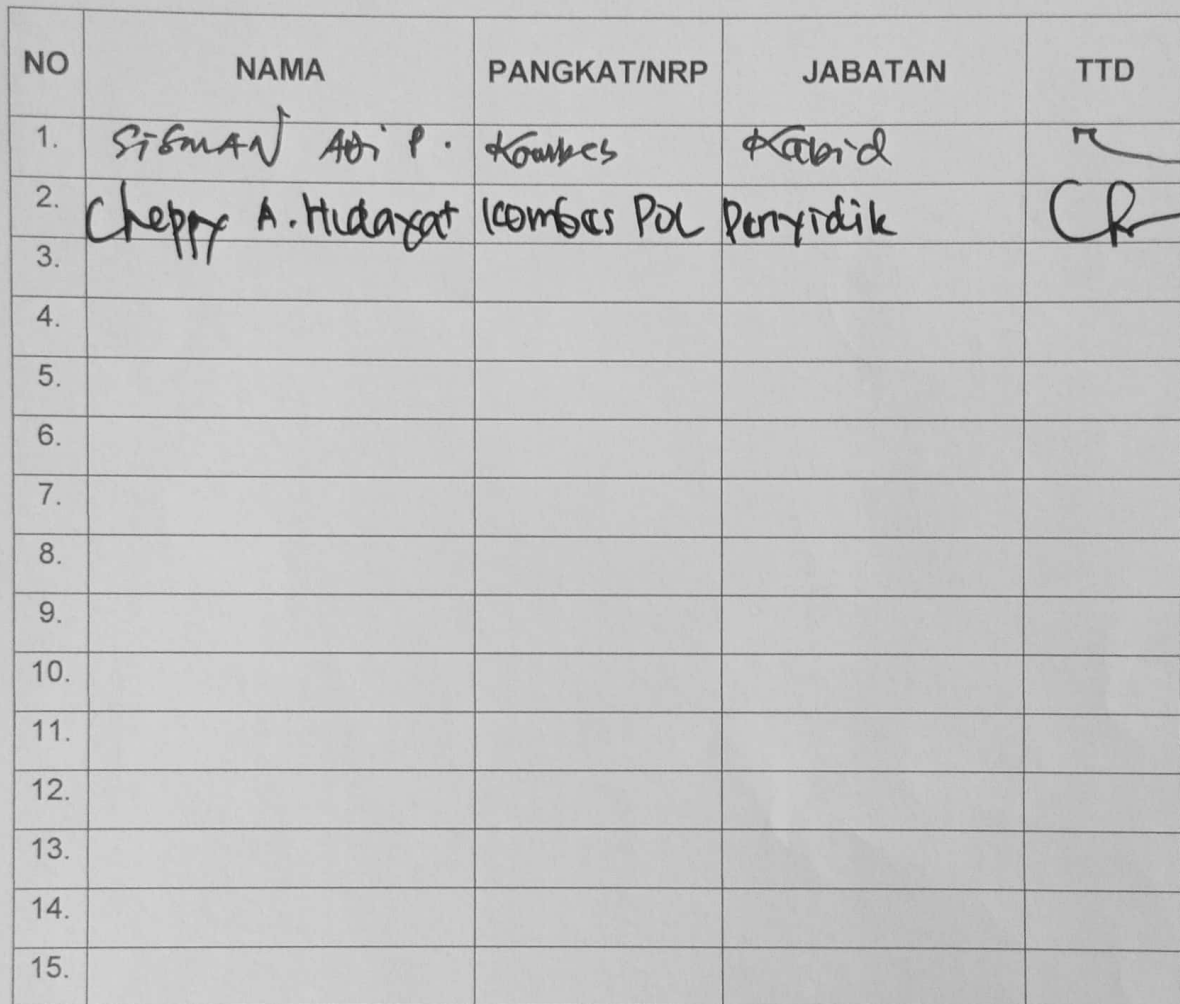 NO NAMA PANGKAT/NRP JABATAN TTD
1. SiGMAN ADi P. Kombes Kabid
2. Cheppy A. Hidayat Kombes Pol Penyidik
3.
4.
5.
6.
7.
8.
9.
10.
11.
12.
13.
14.
15.